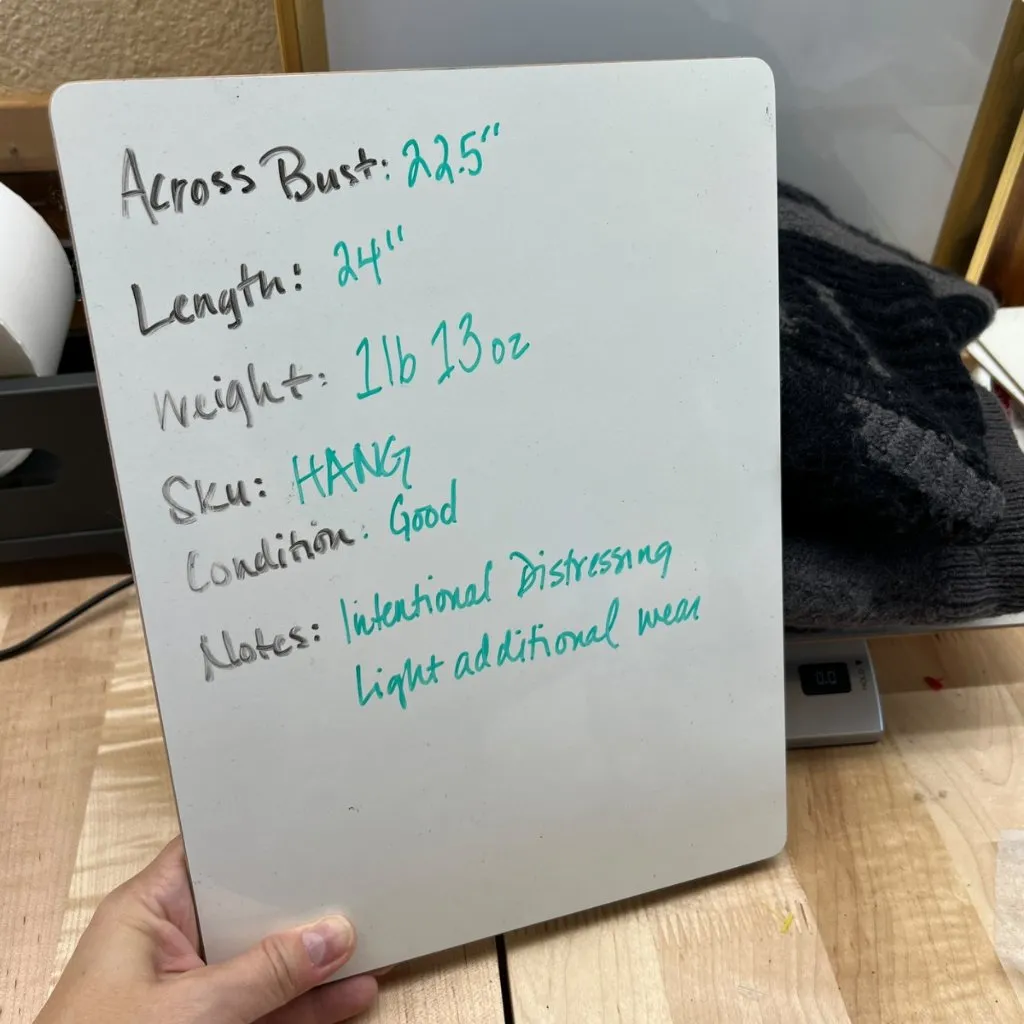 Across Bust: 22.5"
Length: 24"
Weight: 1lb 13oz
Sku: HANG
Condition: Good
Notes: Intentional Distressing
Light additional wear
0.0